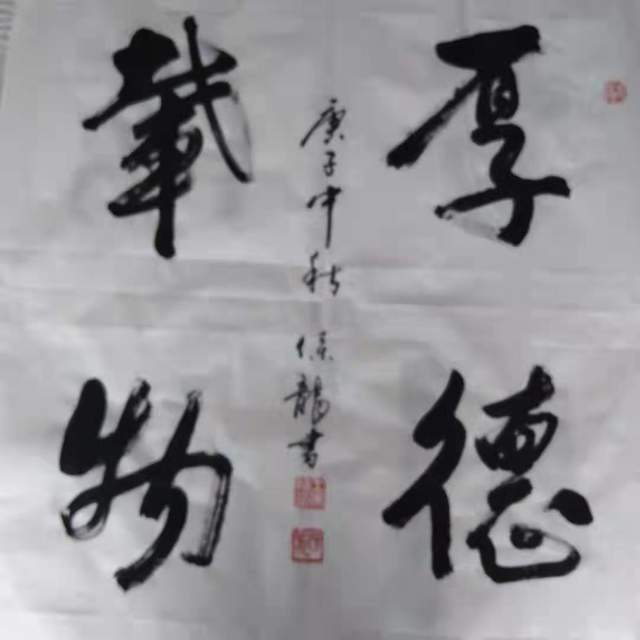 厚德
載物
庚子中秋 龍書